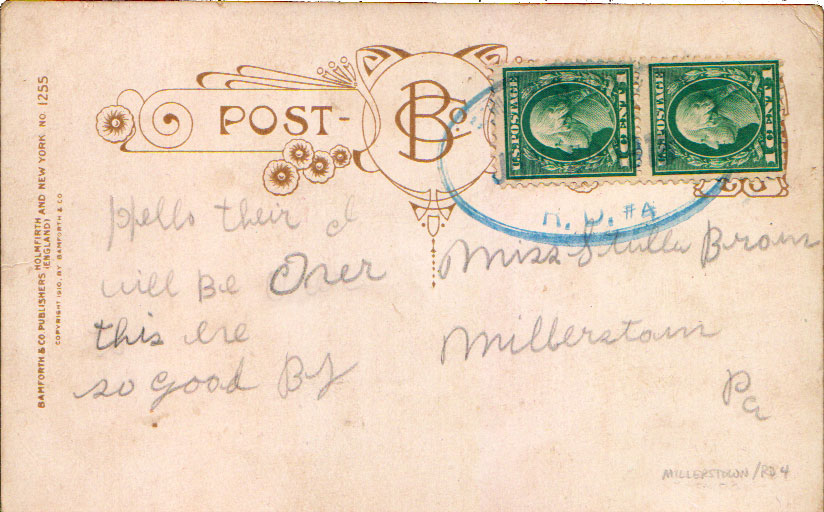 BAMFORTH & CO PUBLISHERS HOLMFIRTH AND NEW YORK NO. 1255
(ENGLAND)
COPYRIGHT 1910, BY BAMFORTH & CO
POST-
B Co
U.S. POSTAGE
1 CENT 1
U.S. POSTAGE
1 CENT 1
R. D. #4
Hello their I
will Be Over
this
so good By
Miss Stella Brown
Millerstown
Pa
MILLERSTOWN/RD 4